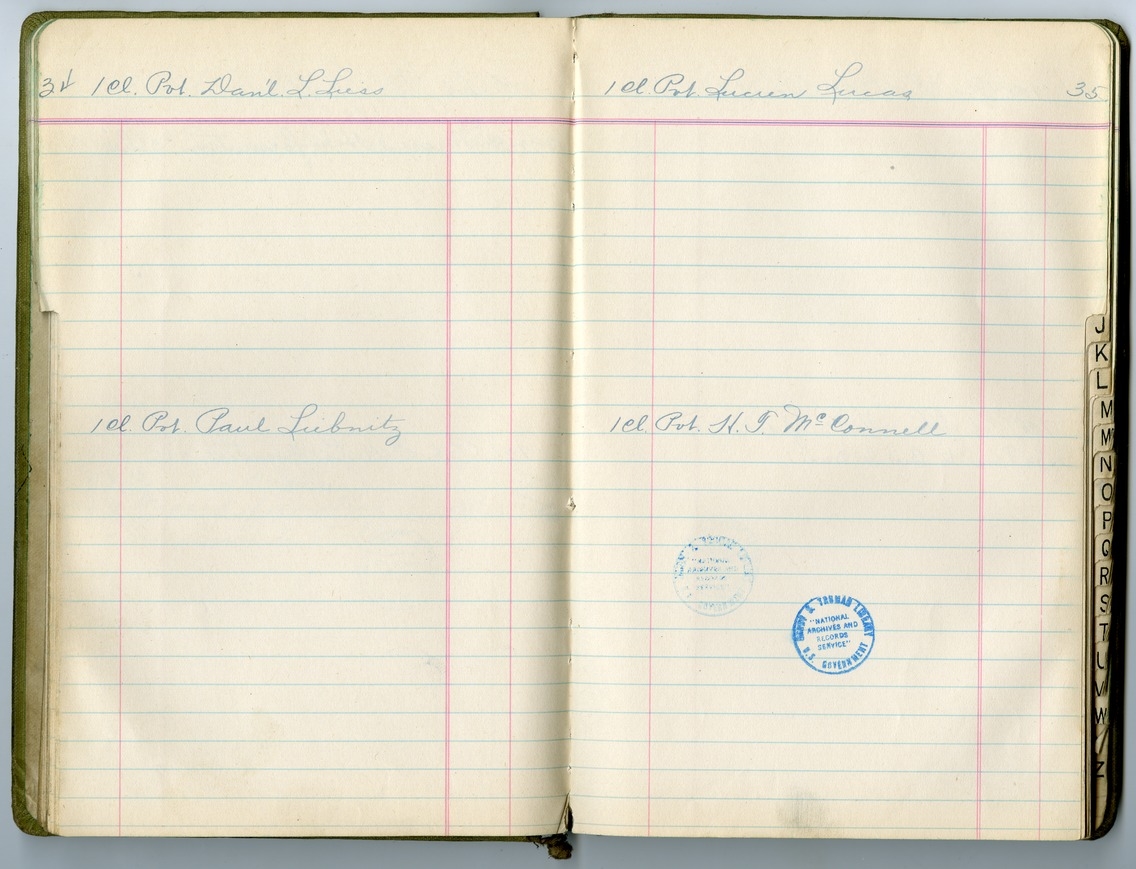 34 1 Cl. Pvt. Dan'l. L. Liess
1 Cl. Pvt. Paul Liebnitz
1 Cl. Pvt. Lucien Lucas 35
1 Cl. Pvt. H. T. McConnell
HARRY S. TRUMAN LIBRARY
"NATIONAL
ARCHIVES AND
RECORDS
SERVICE"
U.S. GOVERNMENT
J
K
L
M
Mc
N
O
P
Q
R
S
T
U
V
W
Z